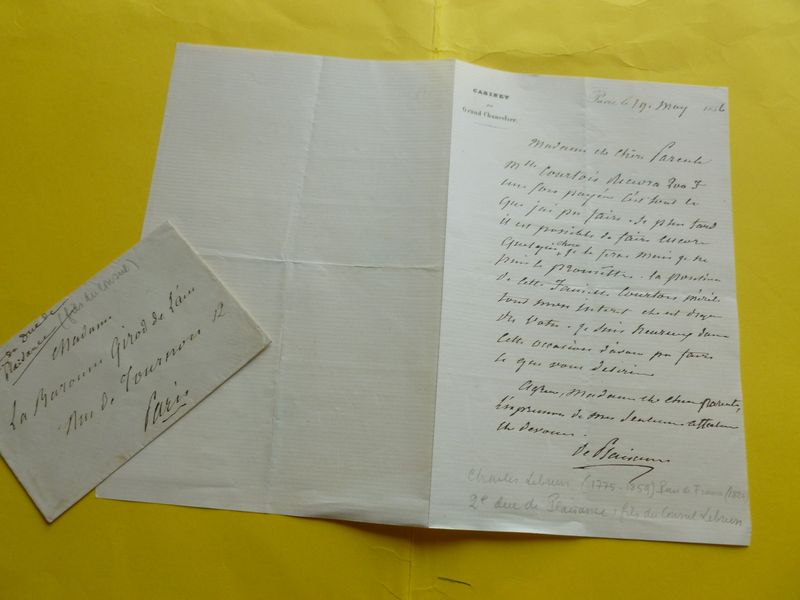 CABINET
du
Grand-Chancelier
Paris le 19 May 1856
Madame et Chère Parente
Mlle Courtois Recevra 200 F
une fois payée C'est tout ce
que j'ai pu faire. De plus tard
il est possible de faire encore
quelque chose, je le ferai mais je ne
puis le promettre. La position
de cette Famille Courtois mérite
tout mon interet elle est digne
du Votre. Je suis heureux dans
cette occasion d'avoir pu faire
ce que vous desiriez
Agréez, Madame et chère parente,
l'expression de mes Sentimens affectueux
et devoués.
de Plaisance
Charles Lebrun (1775-1859) Pair de France
2e duc de Plaisance, fils du Consul Lebrun
du Duc de
Plaisance (fils du Consul)
Madame
La Baronne Girod de l'Ain
Rue de Tournon 12
Paris